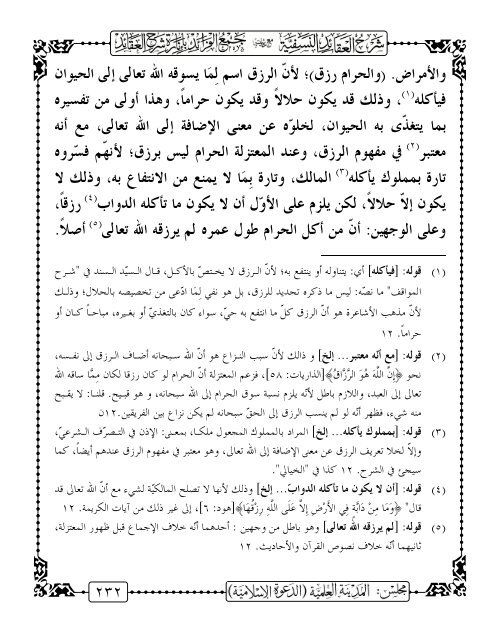 شرح العقائد النسفية مع جمع الفرائد بإنارة شرح العقائد
والأمراض. (والحرام رزق)؛ لأنّ الرزق اسم لِمَا يسوقه الله تعالى إلى الحيوان
فيأكله(١)، وذلك قد يكون حلالاً وقد يكون حراماً، وهذا أولى من تفسيره
بما يتغذّى به الحيوان، لخلوّه عن معنى الإضافة إلى الله تعالى، مع أنه
معتبر(٢) في مفهوم الرزق، وعند المعتزلة الحرام ليس برزق؛ لأنهم فسّروه
تارة بمملوك يأكله(٣) المالك، وتارة بِمَا لا يمنع من الانتفاع به، وذلك لا
يكون إلاّ حلالاً، لكن يلزم على الأوّل أن لا يكون ما تأكله الدواب(٤) رزقاً،
وعلى الوجهين: أنّ من أكل الحرام طول عمره لم يرزقه الله تعالى(٥) أصلاً.
(١) قوله: [فيأكله] أي: يتناوله أو ينتفع به؛ لأنّ الرزق لا يختصّ بالأكل، قال السيّد السند في "شرح
المواقف" ما نصّه: ليس ما ذكره تحديد للرزق، بل هو نفي لِمَا ادّعى من تخصيصه بالحلال؛ وذلك
لأنّ مذهب الأشاعرة هو أنّ الرزق كلّ ما انتفع به حيّ، سواء كان بالتغذّي أو بغيره، مباحاً كان أو
حراماً. ١٢
(٢) قوله: [مع أنه معتبر... إلخ] و ذلك لأنّ سبب النزاع هو أنّ الله سبحانه أضاف الرزق إلى نفسه،
نحو ﴿إِنَّ اللَّهَ هُوَ الرَّزَّاقُ﴾[الذاريات: ٥٨]، فزعم المعتزلة أنّ الحرام لو كان رزقا لكان ممّا ساقه الله
تعالى إلى العبد، واللازم باطل لأنّه يلزم نسبة سوق الحرام إلى الله سبحانه، و هو قبيح. قلنا: لا يقبح
منه شيء، فظهر أنّه لو لم ينسب الرزق إلى الحقّ سبحانه لم يكن نزاع بين الفريقين.١٢ن
(٣) قوله: [بمملوك يأكله... إلخ] المراد بالمملوك المجعول ملكا، بمعنى: الإذن في التصرّف الشرعيّ،
وإلا لخلا تعريف الرزق عن معنى الإضافة إلى الله تعالى، وهو معتبر في مفهوم الرزق عندهم أيضا، كما
سيجئ في الشرح. ١٢ كذا في "الخيالي".
(٤) قوله: [أن لا يكون ما تأكله الدواب... إلخ] وذلك لأنها لا تصلح المالكيّة لشيء مع أنّ الله تعالى قد
قال" ﴿وَمَا مِنْ دَابَّةٍ فِي الأَرْضِ إِلاَّ عَلَى اللَّهِ رِزْقُهَا﴾[هود: ٦]، إلى غير ذلك من آيات الكريمة. ١٢
(٥) قوله: [لم يرزقه الله تعالى] وهو باطل من وجهين : أحدهما أنّه خلاف الإجماع قبل ظهور المعتزلة،
ثانيهما أنّه خلاف نصوص القرآن والأحاديث. ١٢
مجلس: المدينة العلمية (الدعوة الإسلامية)
٢٣٢